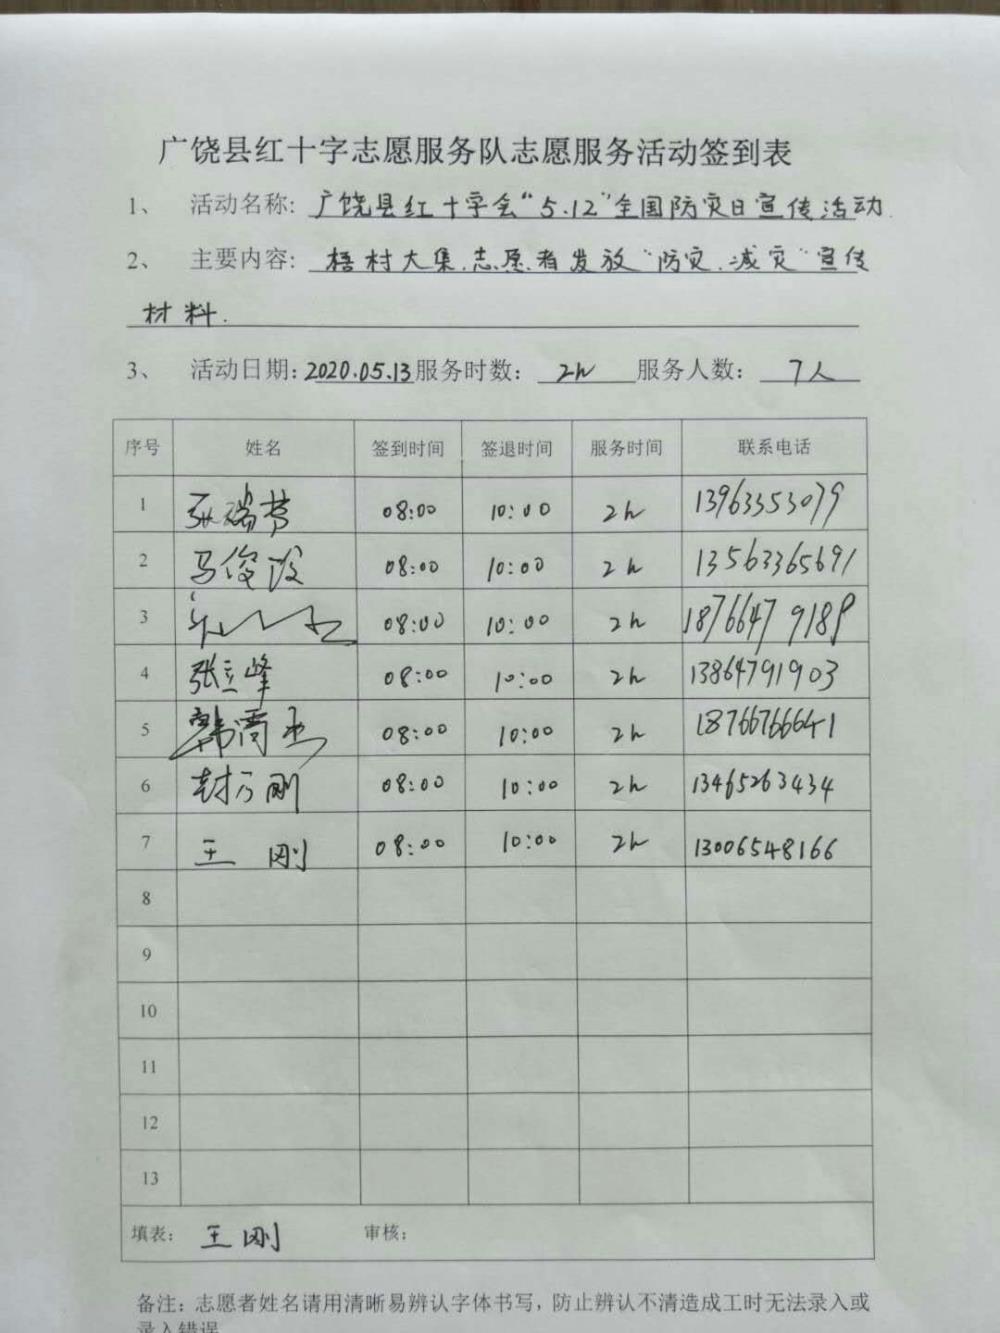 广饶县红十字志愿服务队志愿服务活动签到表
1、 活动名称: 广饶县红十字会“5.12”全国防灾日宣传活动.
2、 主要内容: 梧村大集,志愿者发放“防灾.减灾”宣传
材料.
3、 活动日期: 2020.05.13 服务时数: 2h 服务人数: 7人
序号 姓名 签到时间 签退时间 服务时间 联系电话
1 08:00 10:00 2h 13963353079
2 马俊 08:00 10:00 2h 13563365691
3 08:00 10:00 2h 18766479189
4 张立峰 08:00 10:00 2h 13864791903
5 韩 08:00 10:00 2h 18766766641
6 封万刚 08:00 10:00 2h 13465263434
7 王刚 08:00 10:00 2h 13006548166
8
9
10
11
12
13
填表: 王刚 审核:
备注: 志愿者姓名请用清晰易辨认字体书写, 防止辨认不清造成工时无法录入或
录入错误